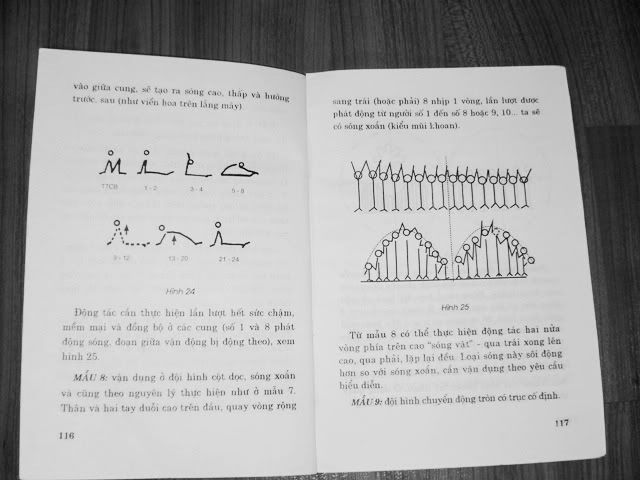 vào giữa cung, sẽ tạo ra sóng cao, thấp và hướng
trước, sau (như viền hoa trên lẵng mây).
TTCB
1 - 2
3 - 4
5 - 8
9 - 12
13 - 20
21 - 24
Hình 24
Động tác cần thực hiện lần lượt hết sức chậm,
mềm mại và đồng bộ ở các cung (số 1 và 8 phát
động sóng, đoạn giữa vận động bị động theo), xem
hình 25.
MẪU 8: vận dụng ở đội hình cột dọc, sóng xoắn
và cũng theo nguyên lý thực hiện như ở mẫu 7.
Thân và hai tay duỗi cao trên đầu, quay vòng rộng
116
sang trái (hoặc phải) 8 nhịp 1 vòng, lần lượt được
phát động từ người số 1 đến số 8 hoặc 9, 10... ta sẽ
có sóng xoắn (kiểu mũi khoan).
Hình 25
Từ mẫu 8 có thể thực hiện động tác hai nửa
vòng phía trên cao "sóng vặt" - qua trái xong lên
cao, qua phải, lặp lại đều. Loại sóng này sôi động
hơn so với sóng xoắn, cần vận dụng theo yêu cầu
biểu diễn.
MẪU 9: đội hình chuyển động tròn có trục cố định.
117